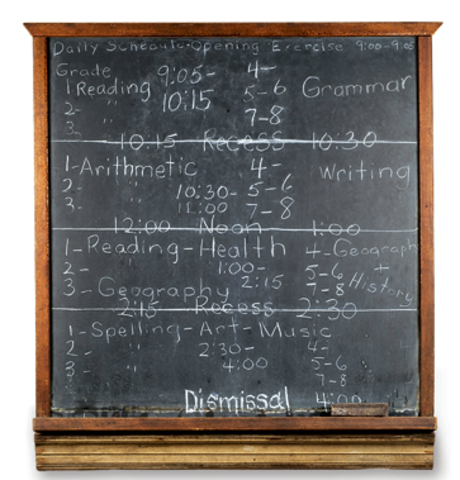 Daily Schedule-Opening Exercise 9:00-9:05
Grade 9:05- 4-
1 Reading 10:15 5-6 Grammar
2- " 7-8
3- "
10:15 Recess 10:30
1-Arithmetic 4- Writing
2- " 10:30- 5-6
3- " 12:00 7-8
12:00 Noon 1:00
1-Reading-Health 4-Geography
2- " 1:00- 5-6 +
3-Geography 2:15 7-8 History
2:15 Recess 2:30
1-Spelling-Art-Music
2- " 2:30- 4-
3- " 4:00 5-6
7-8
Dismissal 4:00